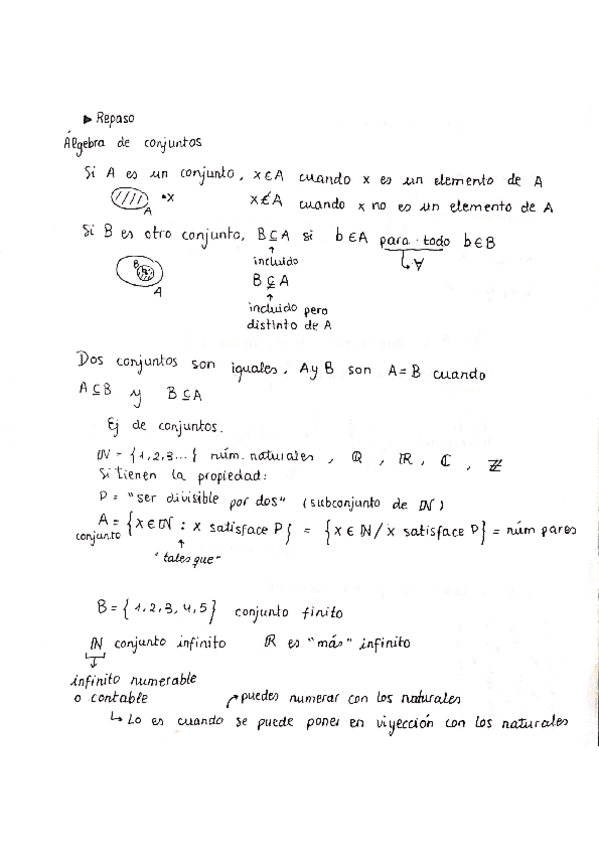 ▶ Repaso
Álgebra de conjuntos
Si A es un conjunto, x ∈ A cuando x es un elemento de A
A •x x ∉ A cuando x no es un elemento de A
Si B es otro conjunto, B ⊆ A si b ∈ A para todo b ∈ B
↑ ↳ ∀
incluido
B A B ⊊ A
↑
incluido pero
distinto de A
Dos conjuntos son iguales, A y B son A = B cuando
A ⊆ B y B ⊆ A
Ej de conjuntos.
ℕ = {1,2,3...} núm. naturales , ℚ , ℝ , ℂ , ℤ
Si tienen la propiedad:
P = "ser divisible por dos" (subconjunto de ℕ)
A = {x ∈ ℕ : x satisface P} = {x ∈ ℕ / x satisface P} = núm pares
conjunto ↑
"tales que"
B = {1,2,3,4,5} conjunto finito
ℕ conjunto infinito ℝ es "más" infinito
↓
infinito numerable
o contable puedes numerar con los naturales
↳ Lo es cuando se puede poner en viyección con los naturales